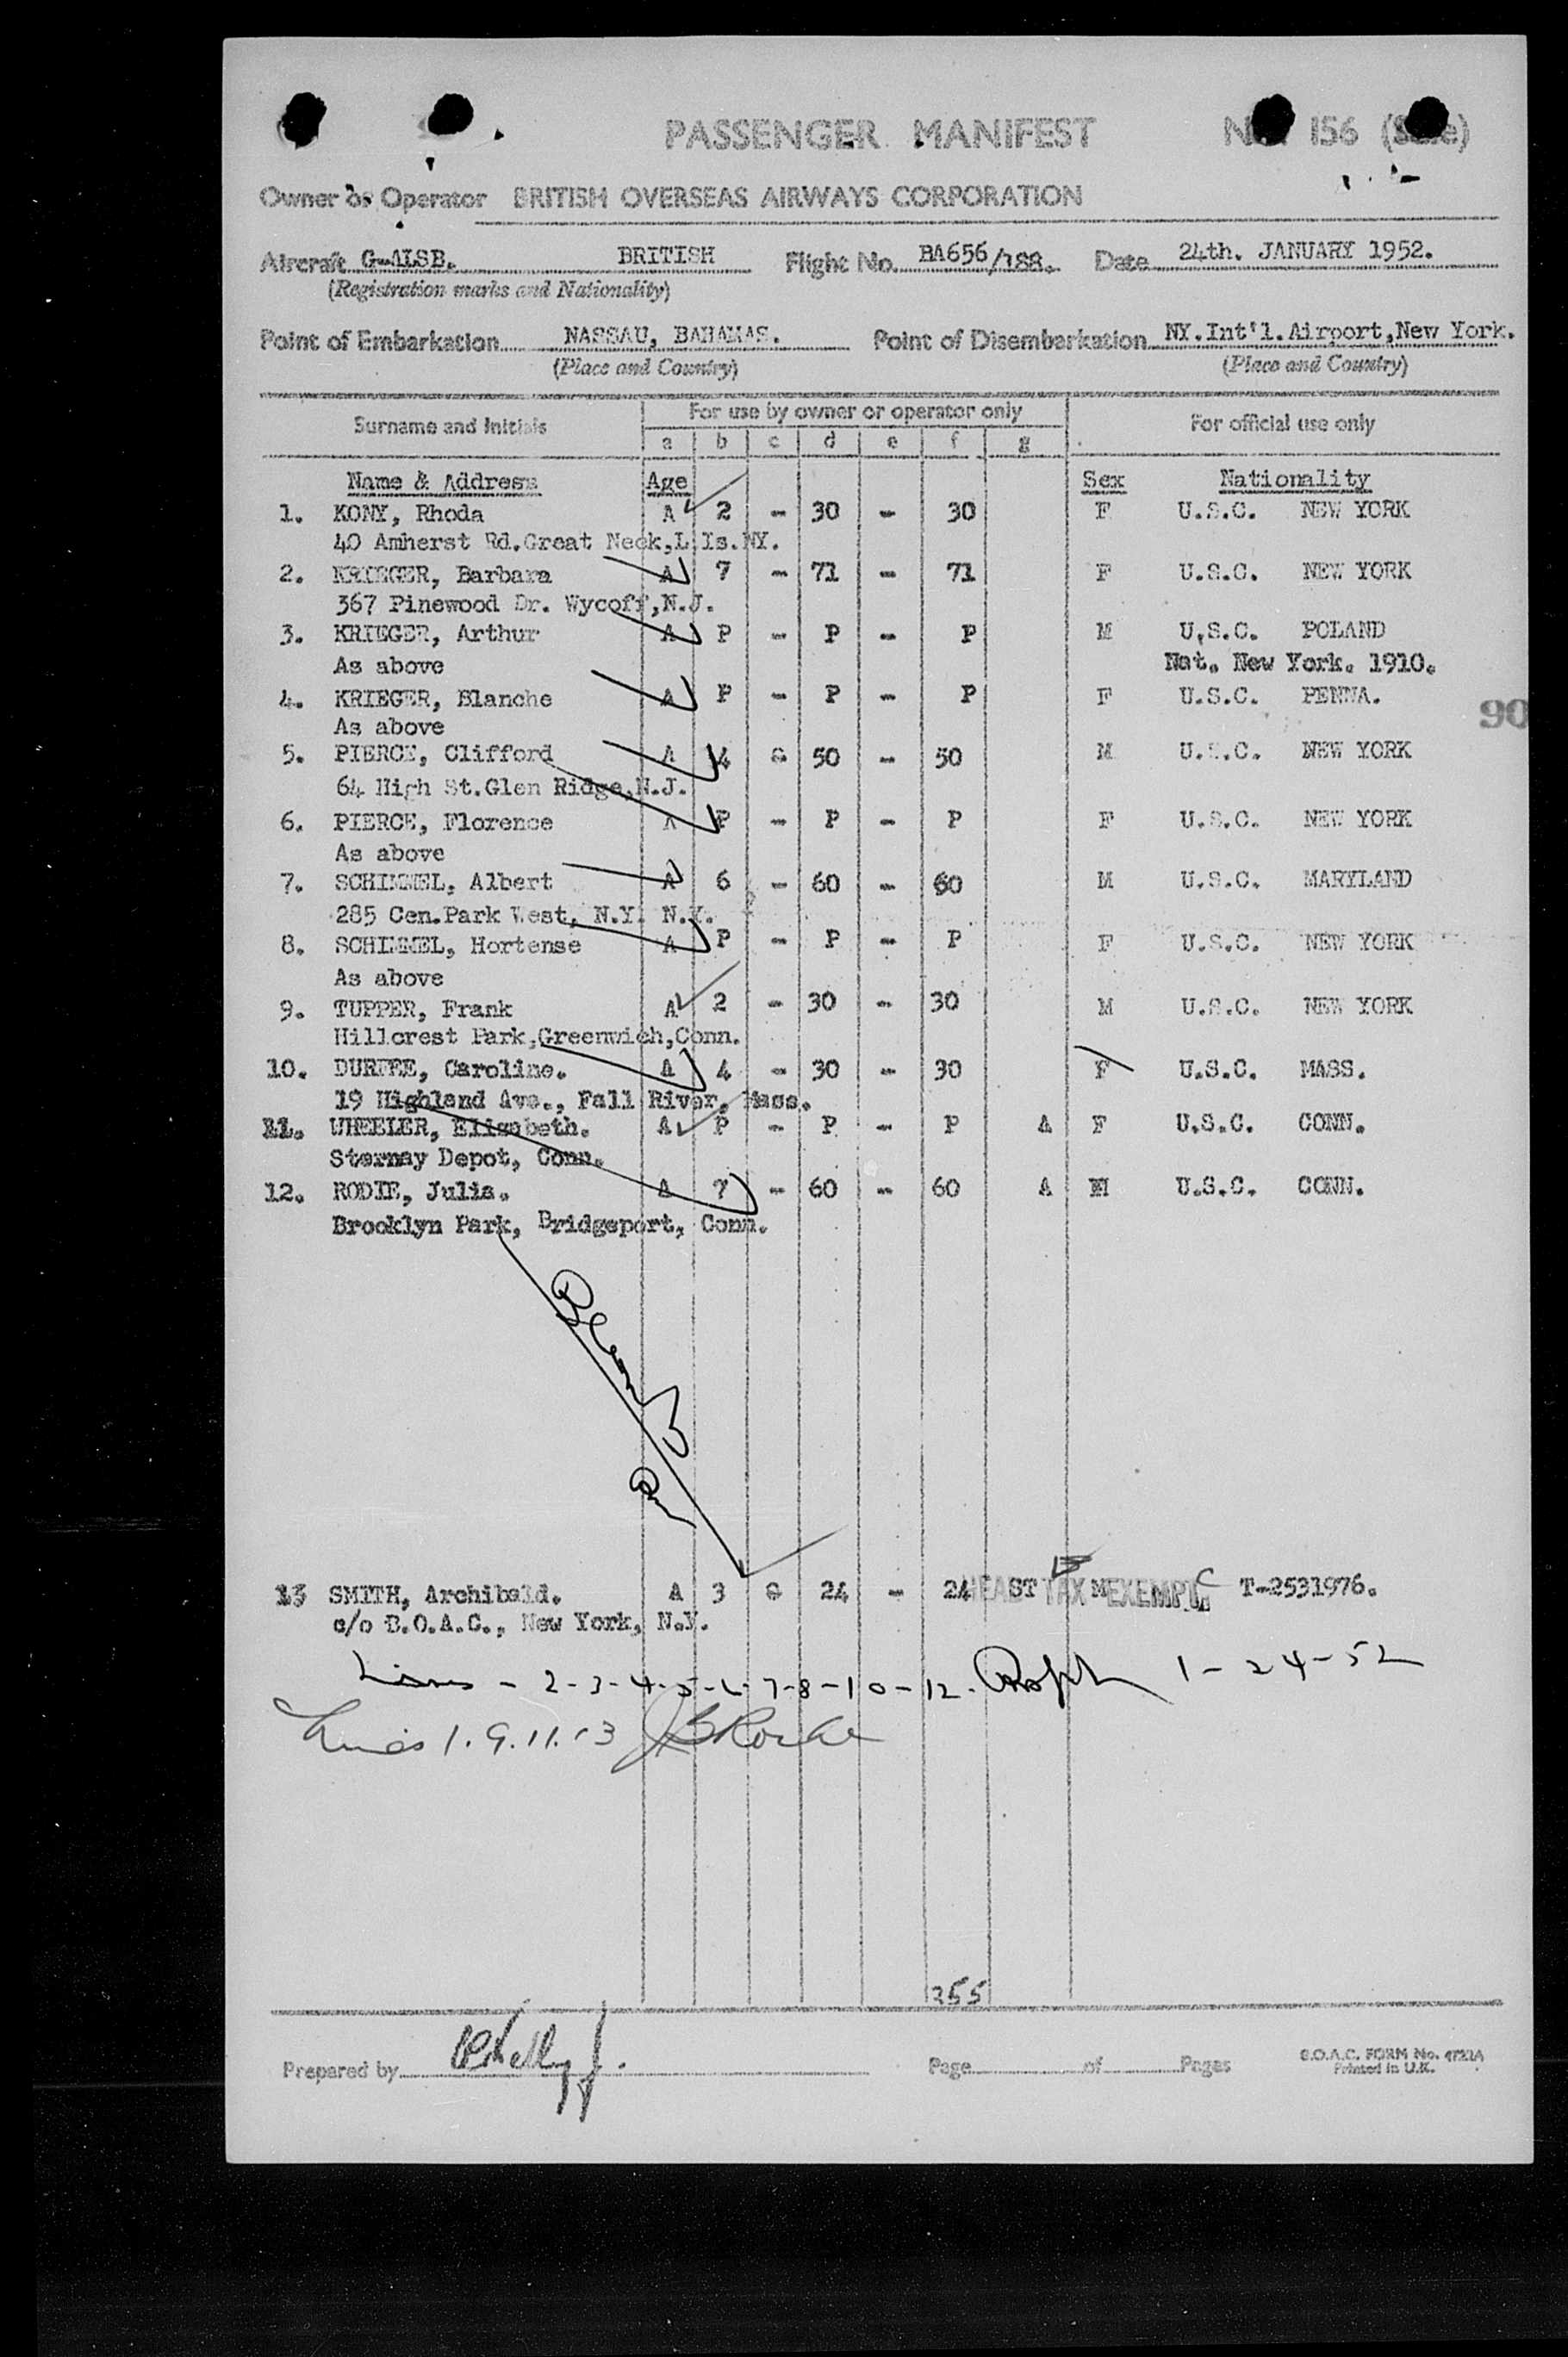 PASSENGER MANIFEST 156
Owner or Operator BRITISH OVERSEAS AIRWAYS CORPORATION
Aircraft G-ALSB. BRITISH Flight No. BA656/188. Date 24th. JANUARY 1952.
(Registration marks and Nationality)
Point of Embarkation NASSAU, BAHAMAS. Point of Disembarkation NY.Int'l.Airport,New York.
(Place and Country) (Place and Country)
Surname and Initials For use by owner or operator only For official use only
a b c d e f g
Name & Address Age Sex Nationality
1. KONY, Rhoda A 2 - 30 - 30 F U.S.C. NEW YORK
40 Amherst Rd.Great Neck,L.Is.NY.
2. KRIEGER, Barbara A 7 - 71 - 71 F U.S.C. NEW YORK
367 Pinewood Dr. Wycoff,N.J.
3. KRIEGER, Arthur A P - P - P M U.S.C. POLAND
As above Nat. New York. 1910.
4. KRIEGER, Blanche A P - P - P F U.S.C. PENNA.
90
As above
5. PIERCE, Clifford A 4 - 50 - 50 M U.S.C. NEW YORK
64 High St.Glen Ridge,N.J.
6. PIERCE, Florence A P - P - P F U.S.C. NEW YORK
As above
7. SCHIMMEL, Albert A 6 - 60 - 60 M U.S.C. MARYLAND
285 Cen.Park West, N.Y. N.Y.
8. SCHIMMEL, Hortense A P - P - P F U.S.C. NEW YORK
As above
9. TUPPER, Frank A 2 - 30 - 30 M U.S.C. NEW YORK
Hillcrest Park,Greenwich,Conn.
10. DURFEE, Caroline. A 4 - 30 - 30 F U.S.C. MASS.
19 Highland Ave., Fall River, Mass.
11. WHEELER, Elizabeth. A P - P - P A F U.S.C. CONN.
Sternay Depot, Conn.
12. RODIE, Julia. A 7 - 60 - 60 A U.S.C. CONN.
Brooklyn Park, Bridgeport, Conn.
13 SMITH, Archibald. A 3 - 24 - 24 HEAD TAX EXEMPT T-2531976.
c/o B.O.A.C., New York, N.Y.
Lines - 2-3-4-5-6-7-8-10-12. 1-24-52
Lines 1.9.11.13
355
Prepared by Page of Pages B.O.A.C. FORM No. 4721A
Printed in U.K.